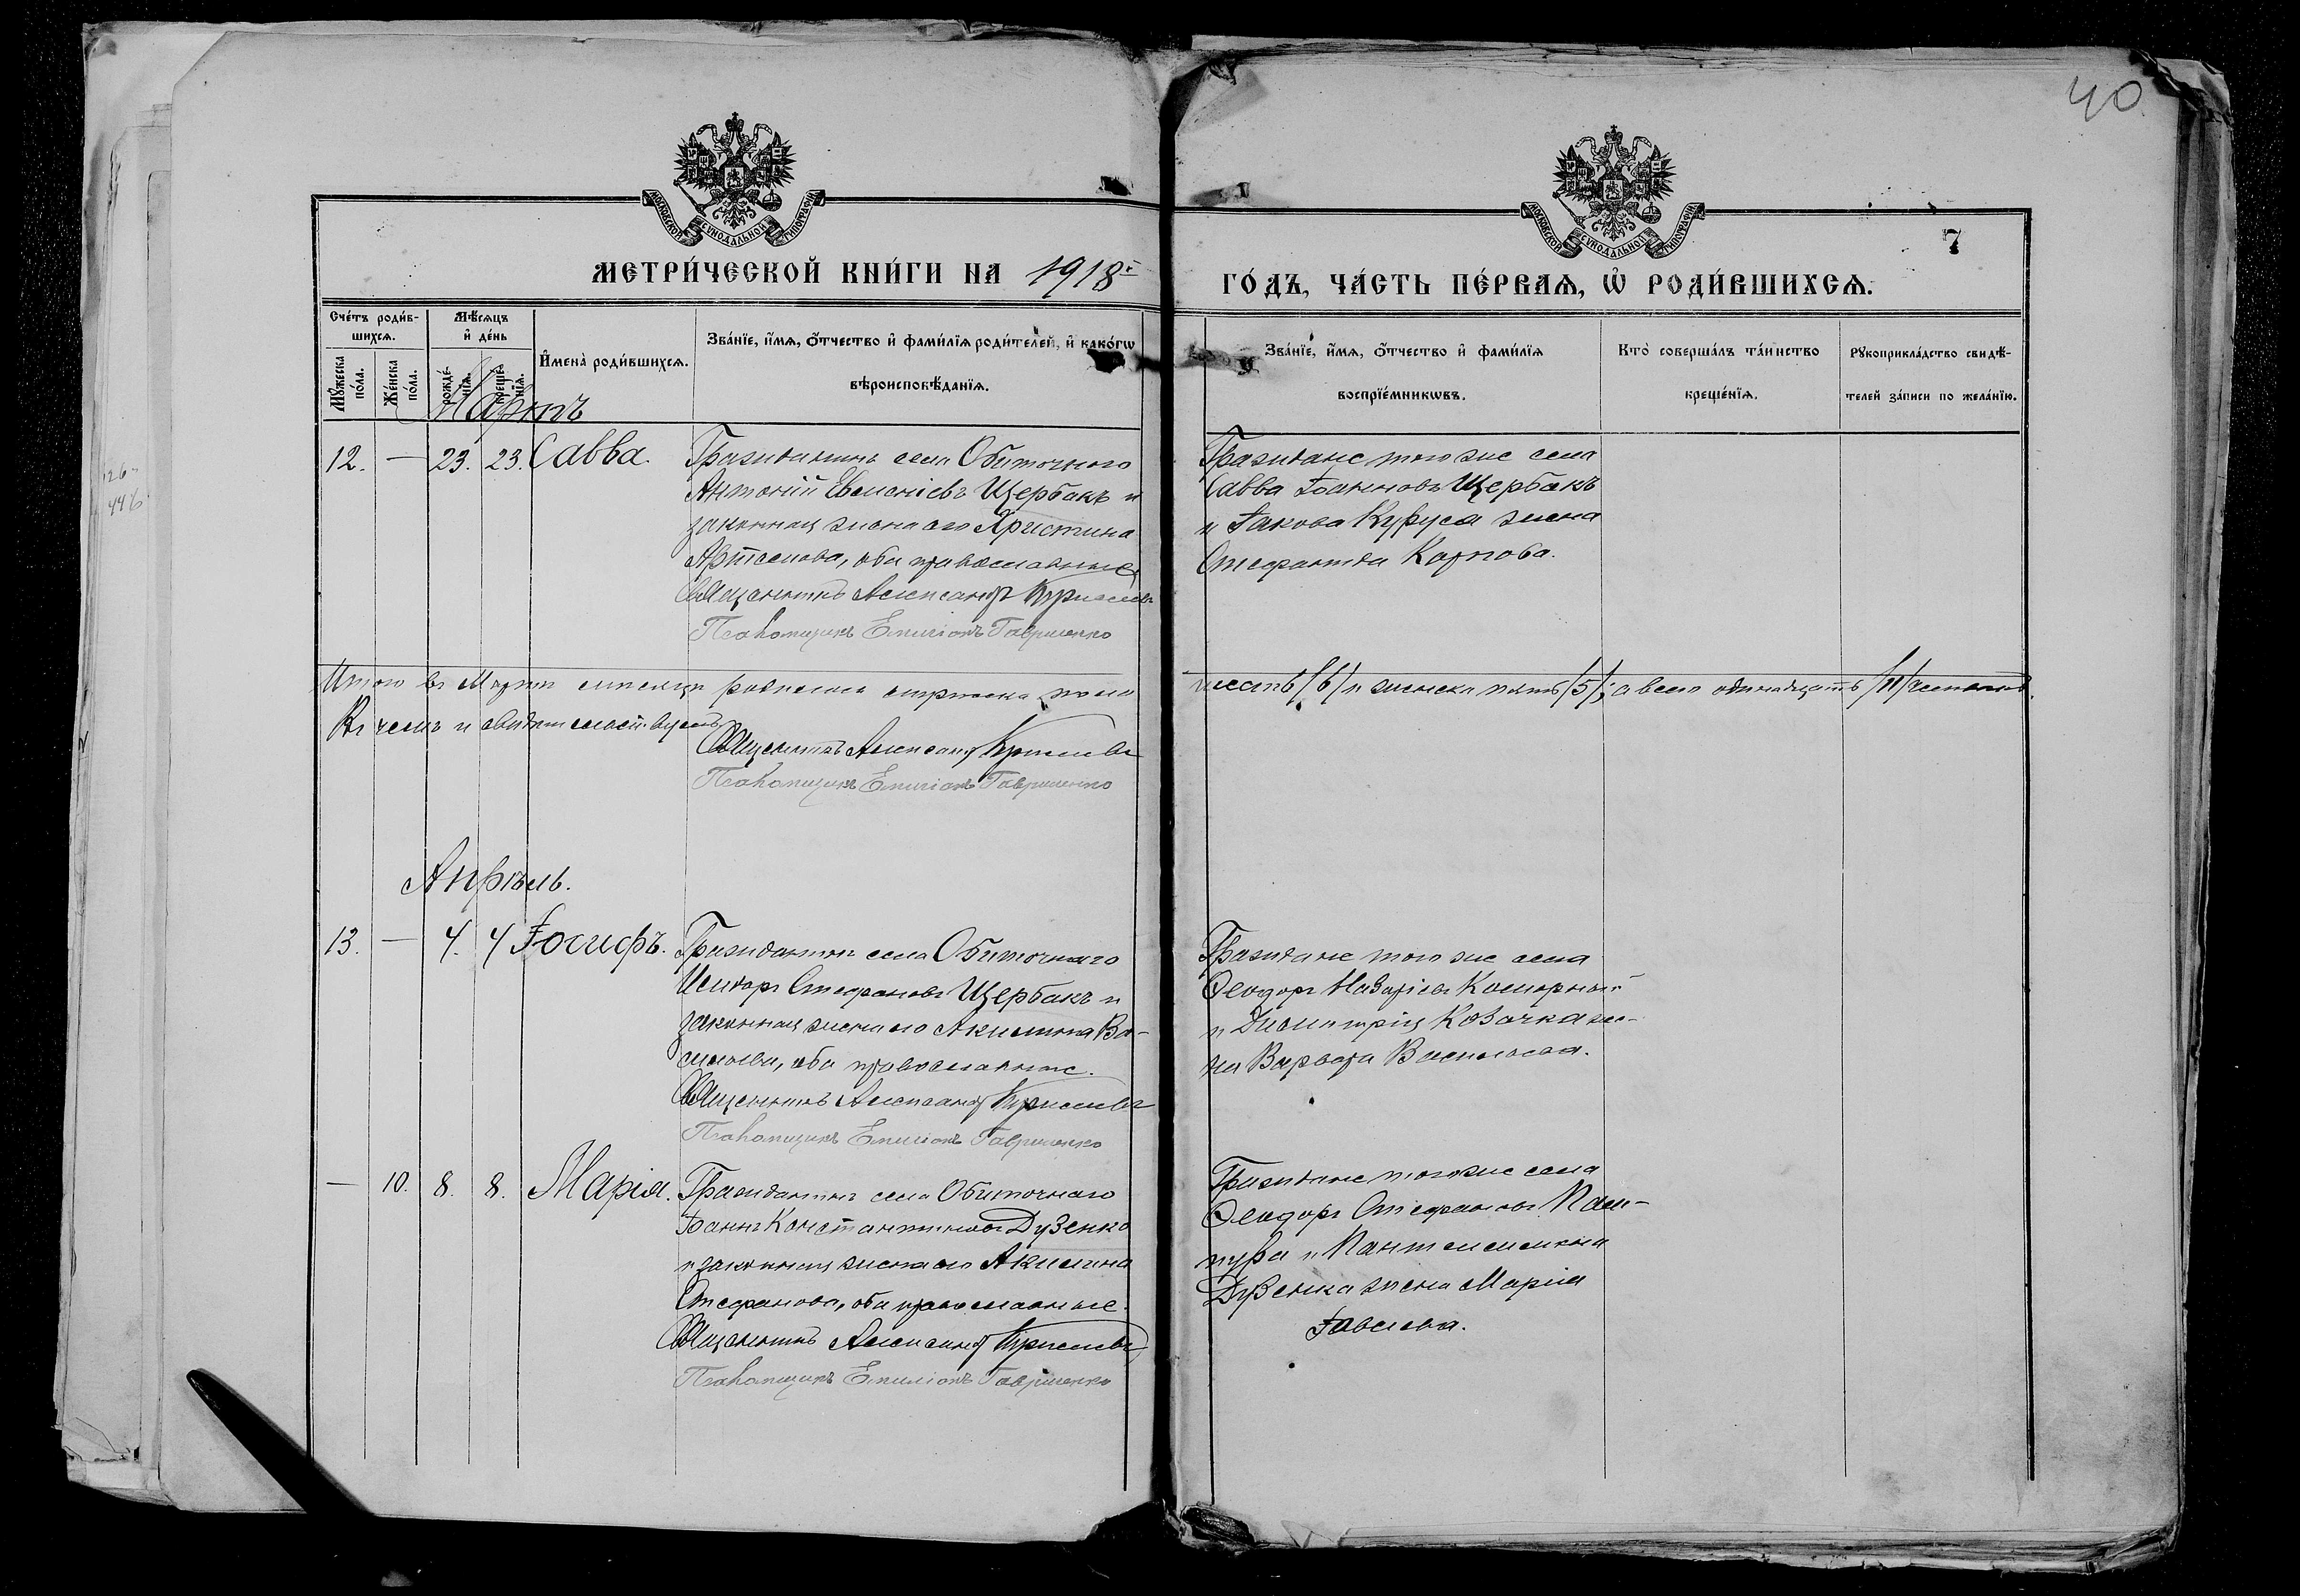 40
МОСКОВСКОЙ СѴНОДАЛЬНОЙ ТИПОГРАФІИ
МОСКОВСКОЙ СѴНОДАЛЬНОЙ ТИПОГРАФІИ
7
МЕТРИ́ЧЕСКОЙ КНИ́ГИ НА 1918
ГО́ДЪ, ЧА́СТЬ ПЕ́РВАЯ, Ѡ РОДИ́ВШИХСЯ.
Сче́тъ роди́в-
шихся.
Мꙋжеска по́ла.
Же́нска по́ла.
Мѣ́сяцъ
и де́нь
рожде́-
нїя.
креще́-
нїя.
Имена̀ роди́вшихся.
Зва́нїе, и́мя, ѻ́тчество и фами́лїя роди́телей, и како́гѡ
вѣроисповѣ́данїя.
Зва́нїе, и́мя, ѻ́тчество и фами́лїя
воспрїе́мникѡвъ.
Кто̀ соверша́лъ та́инство
креще́нїя.
Рꙋкоприкла́дство свидѣ́-
телей за́писи по жела́нїю.
Мартъ
12. — 23. 23. Савва.
Гражданинъ села Обиточного
Антоній Евменіевъ Щербакъ и
законная жена его Христина
Артемова, оба православные
Священникъ Александръ
Псаломщикъ Гавриленко
Граждане того же села
Савва Іоанновъ Щербакъ
и Іакова Куруса жена
Стефанида Карпова.
Итого въ Мартѣ мѣсяцѣ родилось мужеска пола
шесть /6/ и женска пять /5/; а всего одинадцать /11/ человѣкъ.
Въ чемъ и свидѣтельствуемъ
Священникъ Александръ
Псаломщикъ Гавриленко
Апрѣль.
13. — 4. 4 Іосифъ.
Гражданинъ села Обиточного
Исидоръ Стефановъ Щербакъ и
законная жена его Акилина Ва-
сильева, оба православные.
Священникъ Александръ
Псаломщикъ Гавриленко
Граждане того же села
Ѳеодоръ Назаріевъ
и Димитрія Козачка же-
на Варвара Васильева.
— 10. 8. 8. Марія.
Гражданинъ села Обиточного
Іоаннъ Константиновъ Дузенко
и законная жена его Акилина
Стефанова, оба православные.
Священникъ Александръ
Псаломщикъ Гавриленко
Граждане того же села
Ѳеодоръ Стефановъ
и Пантелеимона
Дузенка жена Марія
Іовлева.